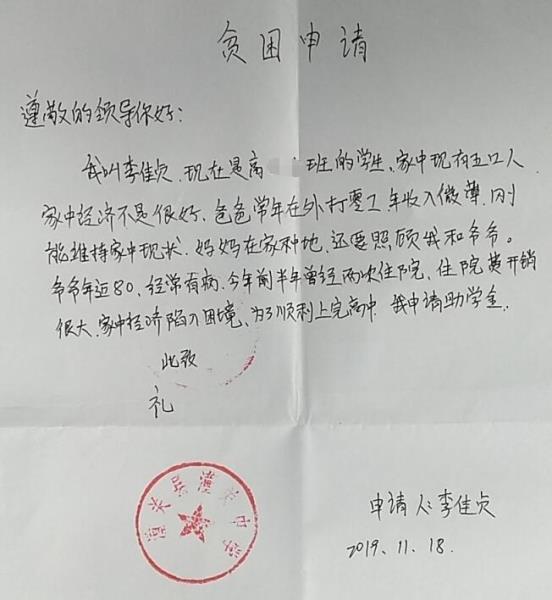 贫困申请
尊敬的领导你好:
我叫李佳贞.现在是高 班的学生,家中现有五口人
家中经济不是很好.爸爸常年在外打零工,年收入微薄,刚
能维持家中现状.妈妈在家种地,还要照顾我和爷爷。
爷爷年近80、经常有病.今年前半年曾经两次住院、住院费开销
很大.家中经济陷入困境、为了顺利上完高中.我申请助学金.
此致
礼
申请人:李佳贞
2019.11.18.
中学